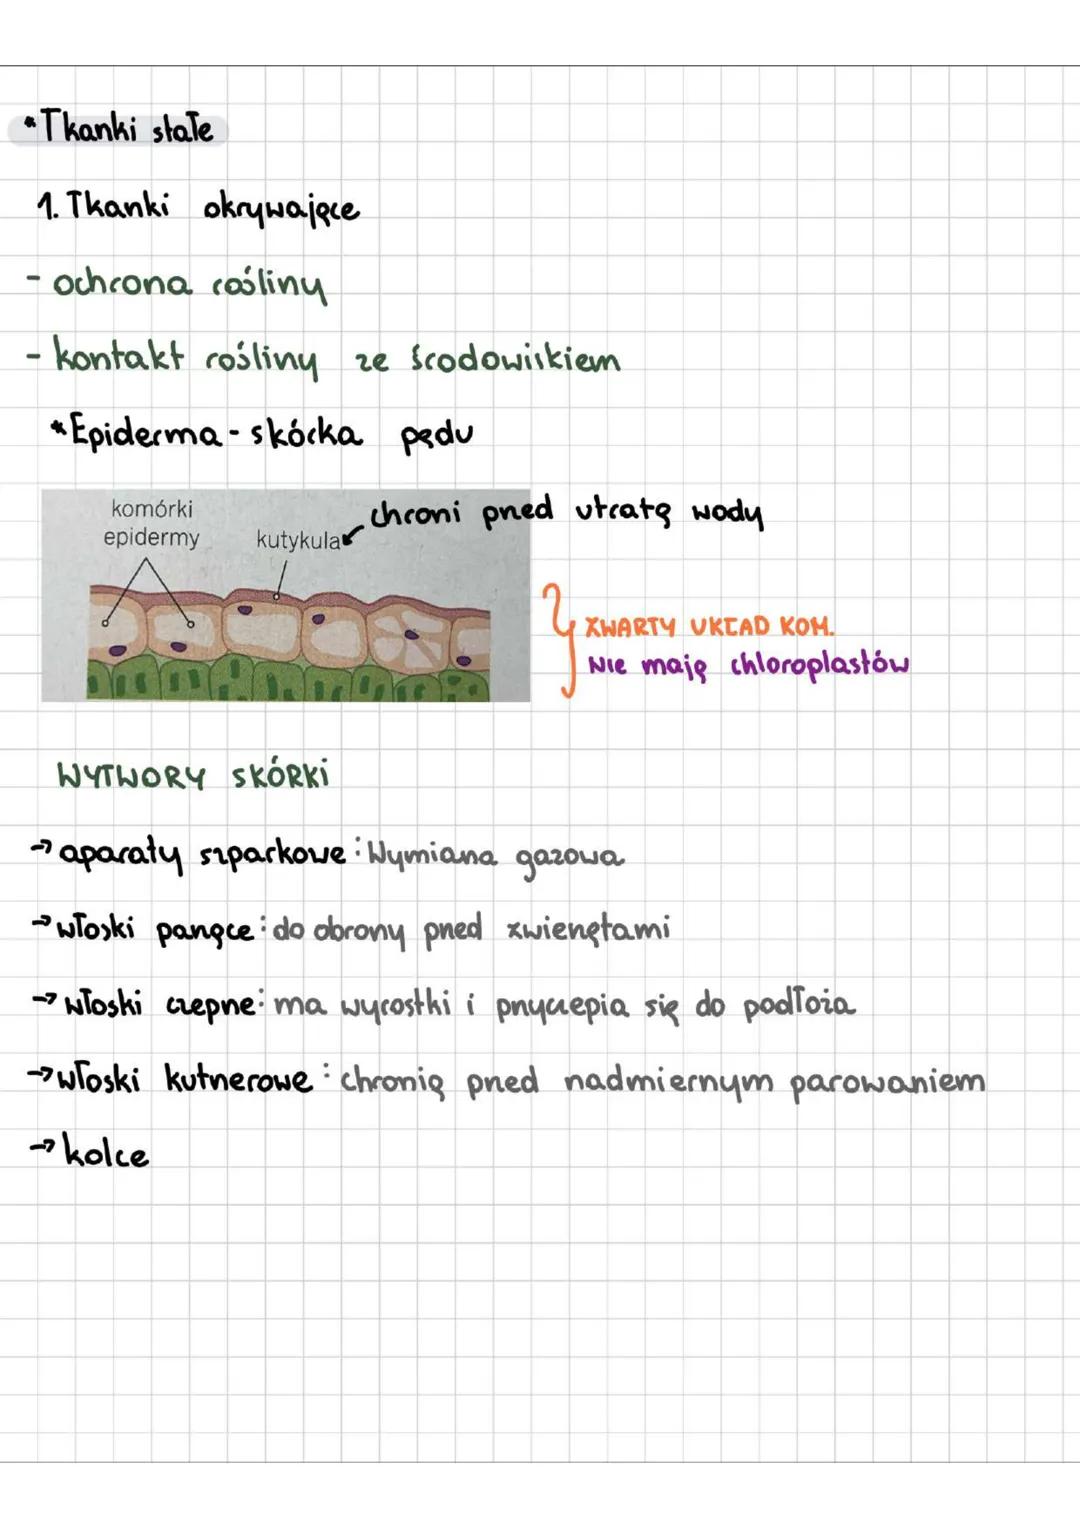 *Tkanki stałe
1. Tkanki okrywające
- ochrona rośliny
- kontakt rośliny ze środowiskiem
*Epiderma - skórka pędu
komórki
epidermy
kutykula
chroni przed utratą wody
ZWARTY UKŁAD KOM.
Nie mają chloroplastów
WYTWORY SKÓRKI
→ aparaty szparkowe: Wymiana gazowa
→ włoski parzące: do obrony przed zwierzętami
→ włoski czepne: ma wyrostki i przyczepia się do podłoża
→ włoski kutnerowe: chronią przed nadmiernym parowaniem
→ kolce